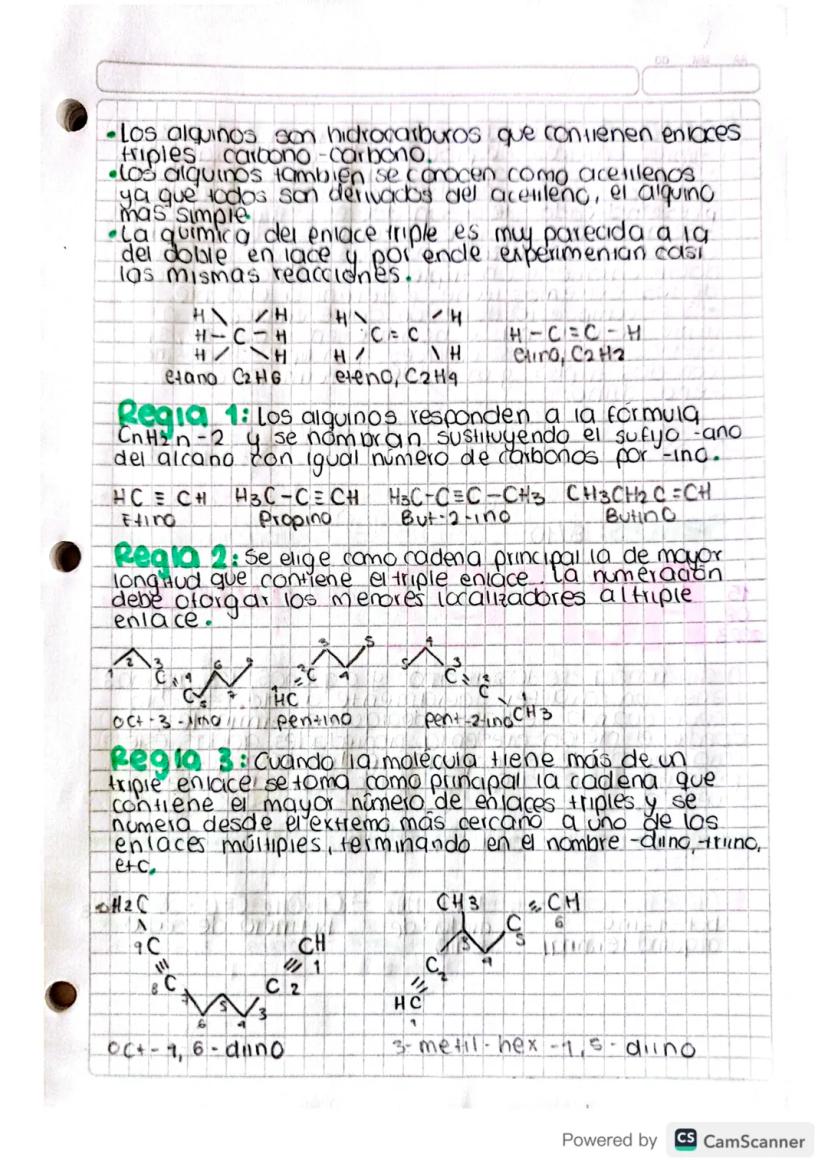 DD MM AA
• Los alquinos son hidrocarburos que contienen enlaces
triples carbono-carbono.
• Los alquinos también se conocen como acetilenos
ya que todos son derivados del acetileno, el alquino
mas simple.
• La química del enlace triple es muy parecida a la
del doble en lace y por ende experimentan casi
las mismas reacciones.
H \ / H H \ / H
H - C - H C = C H - C ≡ C - H
H / \ H H / \ H etino, C2H2
etano C2H6 eteno, C2H4
Regla 1: Los alquinos responden a la fórmula
CnH2n-2 y se nombran sustituyendo el sufijo -ano
del alcano con igual número de carbonos por -ino.
HC ≡ CH H3C-C≡CH H3C-C≡C-CH3 CH3CH2C≡CH
Etino Propino But-2-ino Butino
Regla 2: Se elige como cadena principal la de mayor
longitud que contiene el triple enlace. La numeración
debe otorgar los menores localizadores al triple
enlace.
3 5 4
1 2 3 6 8 2 5 3
C 4 C 4 C 2
C 5 7 1 HC C 1
oct-3-ino pentino pent-2-ino CH3
Regla 3: Cuando la molécula tiene más de un
triple enlace se toma como principal la cadena que
contiene el mayor número de enlaces triples y se
numera desde el extremo más cercano a uno de los
enlaces múltiples, terminando en el nombre -diino, -triino,
etc.
H2C CH3 ≡ CH
C 6
9 C CH 3 5
≡ ≡ 1 C 2 4
8 C C 2 ≡
7 5 3 HC
6 4 1
Oct-1,6-diino 3-metil-hex-1,5-diino
Powered by CS CamScanner